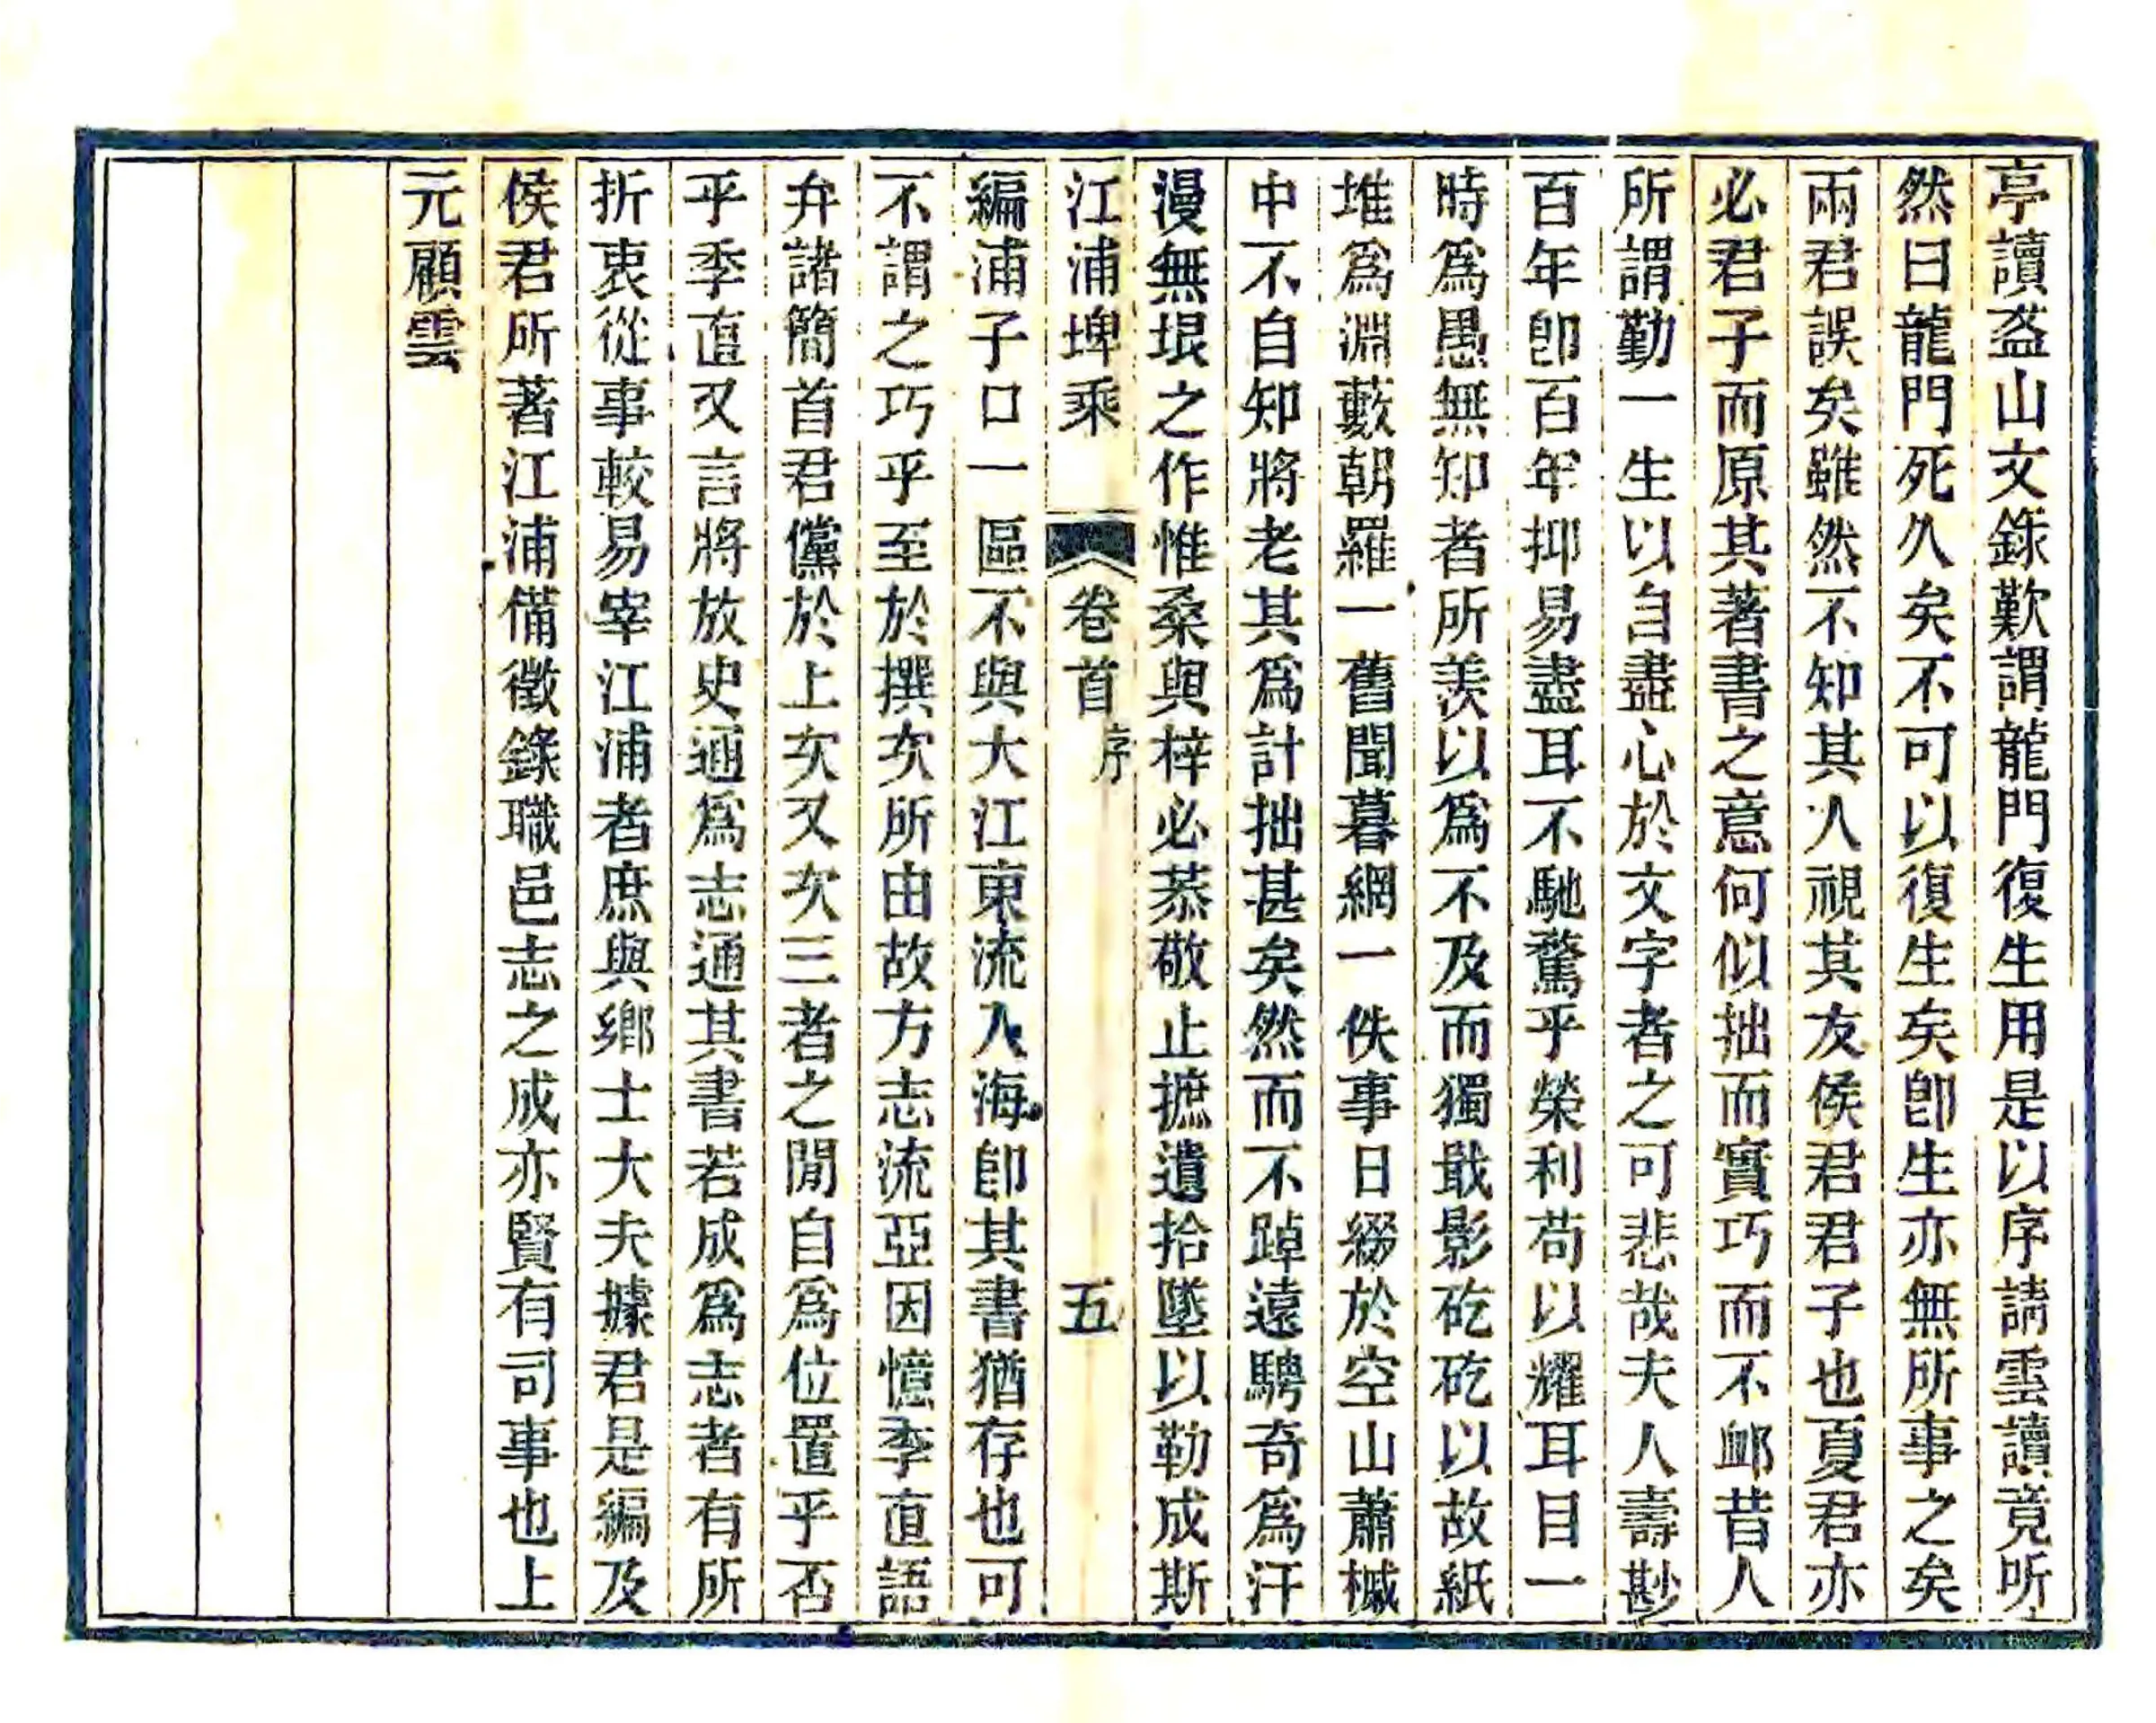 亭讀盋山文錄歎謂龍門復生用是以序請雲讀竟听
然曰龍門死久矣不可以復生矣卽生亦無所事之矣
兩君誤矣雖然不知其人視其友侯君君子也夏君亦
必君子而原其著書之意何似拙而實巧而不卹昔人
所謂勤一生以自盡心於文字者之可悲哉夫人壽尠
百年卽百年抑易盡耳不馳騖乎榮利苟以耀耳目一
時爲愚無知者所羨以爲不及而獨戢影矻矻以故紙
堆爲淵藪朝羅一舊聞暮網一佚事日綴於空山蕭槭
中不自知將老其爲計拙甚矣然而不踔遠騁奇爲汗
漫無垠之作惟桑與梓必恭敬止摭遺拾墜以勒成斯
江浦埤乘 卷首 序 五
編浦子口一區不與大江東流入海卽其書猶存也可
不謂之巧乎至於撰次所由故方志流亞因憶季直語
弁諸簡首君儻於上次又次三者之閒自爲位置乎否
乎季直又言將放史通爲志通其書若成爲志者有所
折衷從事較易宰江浦者庶與鄉士大夫據君是編及
侯君所著江浦備徵錄職邑志之成亦賢有司事也上
元顧雲